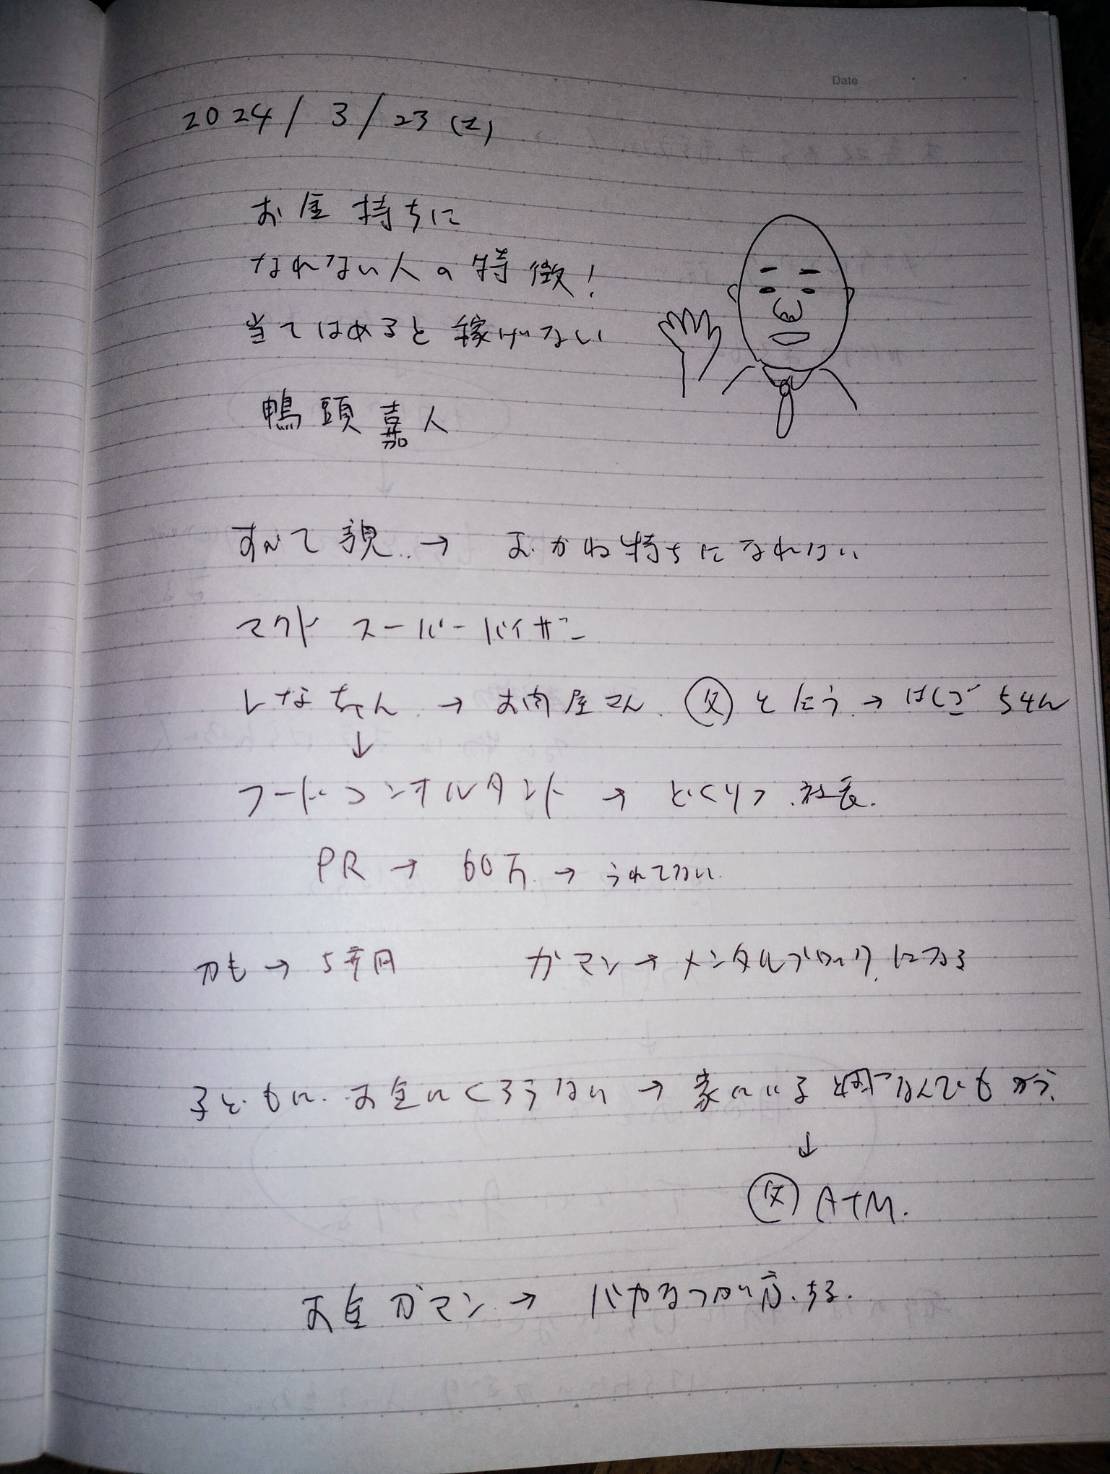 Date
2024/3/23(土)
お金持ちに
なれない人の特徴!
当てはめると稼げない
鴨頭嘉人
すべて親 → おかね持ちになれない
マクド スーバーバイザー
しなちゃん → お肉屋さん 父 とたう → はしご ちゃん
↓
フードコンサルタント → どくりつ 社長.
PR → 60万 → うれてない
かも → 5辛円 ガマン → メンタルブロックになる
子どもに お金にくろうない → 家にいる なんでもかう.
↓
父 ATM.
お金ガマン → バカなつかい方.する.